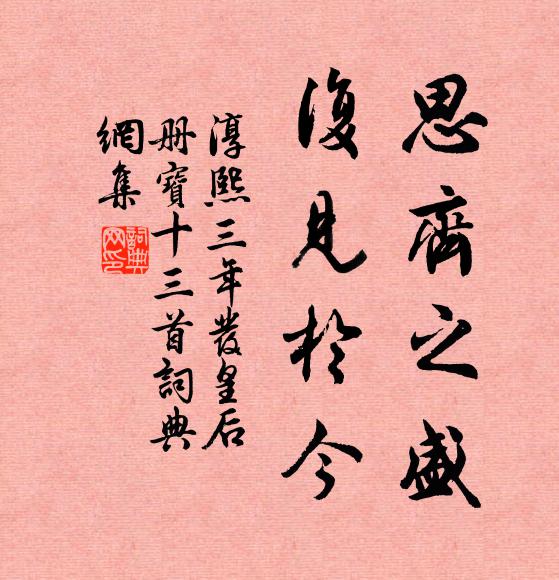 思齊之盛
復見於今
淳熙三年發皇后
册寶十三首詞典
網集
詞典
網印